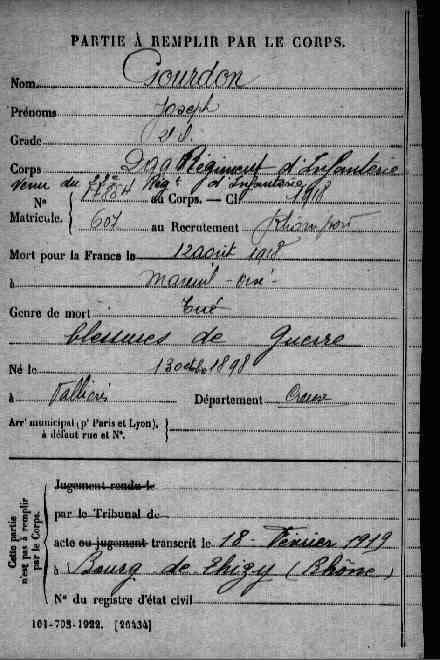 PARTIE À REMPLIR PAR LE CORPS.
Nom Gourdon
Prénoms Joseph
Grade 2e S.
Corps Régiment d'Infanterie
Venu du Régt d'Infanterie
No au Corps. — Cl 1918
Matricule. 607 au Recrutement
Mort pour la France le 12 août 1918
à Mareuil - Oise -
Genre de mort Tué
blessures de Guerre
Né le 13 1898
à Département Creuse
Arrt municipal (pr Paris et Lyon),
à défaut rue et N°.
Cette partie
n'est pas à remplir
par le Corps.
Jugement rendu le
par le Tribunal de
acte ou jugement transcrit le 18 - Février 1919
à Bourg de Thizy (Rhône)
N° du registre d'état civil
101-708-1922. [26434]